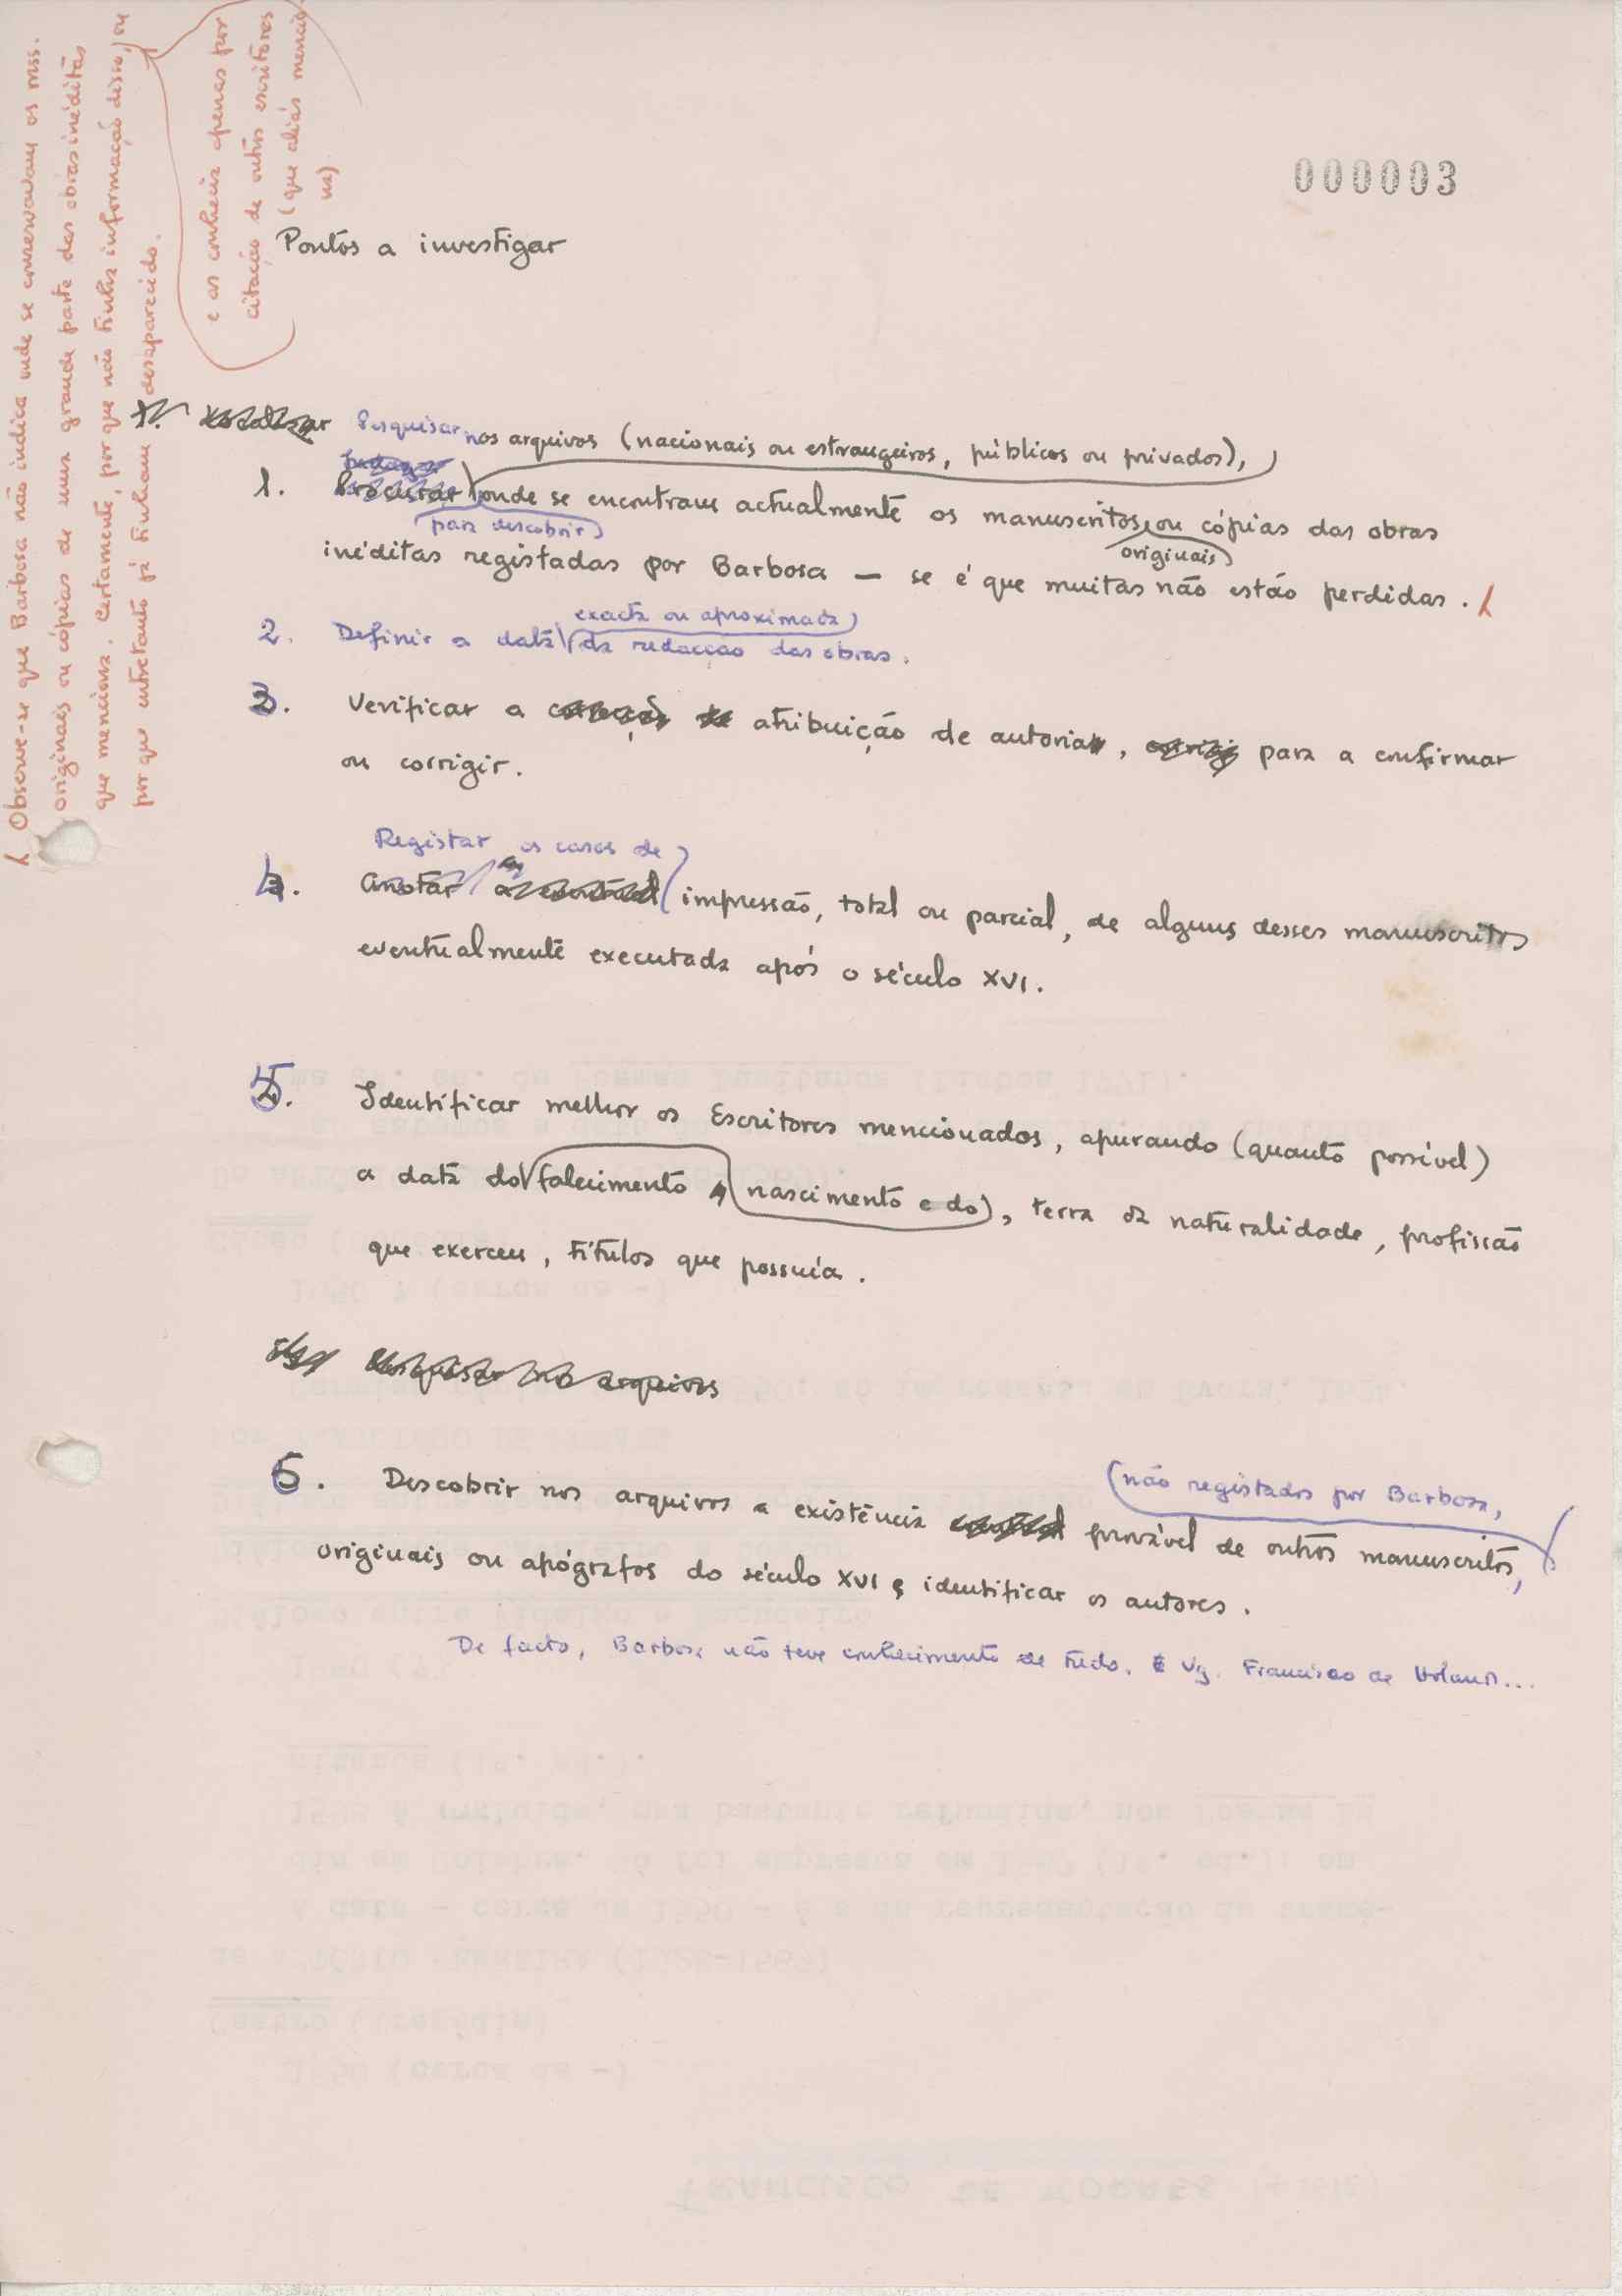 000003
Pontos a investigar
Pesquisar nos arquivos (nacionais ou estrangeiros, públicos ou privados),
1. Procurar onde se encontram actualmente os manuscritos ou cópias das obras
para descobrir
originais
inéditas registadas por Barbosa — se é que muitas não estão perdidas.
exacta ou aproximada
2. Definir a data da redacção das obras.
3. Verificar a atribuição de autoria, para a confirmar
ou corrigir.
Registar os casos de
4. Anotar impressão, total ou parcial, de alguns desses manuscritos
eventualmente executada após o século XVI.
5. Identificar melhor os Escritores mencionados, apurando (quanto possível)
a data do falecimento nascimento e do, terra da naturalidade, profissão
que exerceu, títulos que possuía.
Pesquisar nos arquivos
(não registados por Barbosa,
6. Descobrir nos arquivos a existência provável de outros manuscritos,
originais ou apógrafos do século XVI e identificar os autores.
De facto, Barbosa não teve conhecimento de tudo. Vg. Francisco de Holanda...
Observe-se que Barbosa não indica onde se conservavam os mss.
originais ou cópias de uma grande parte das obras inéditas
que menciona. Certamente, por que não tinha informação disso, ou
por que entretanto já tinham desaparecido.
e as conhecia apenas por
citação de outros escritores
(que aliás mencio-
na)